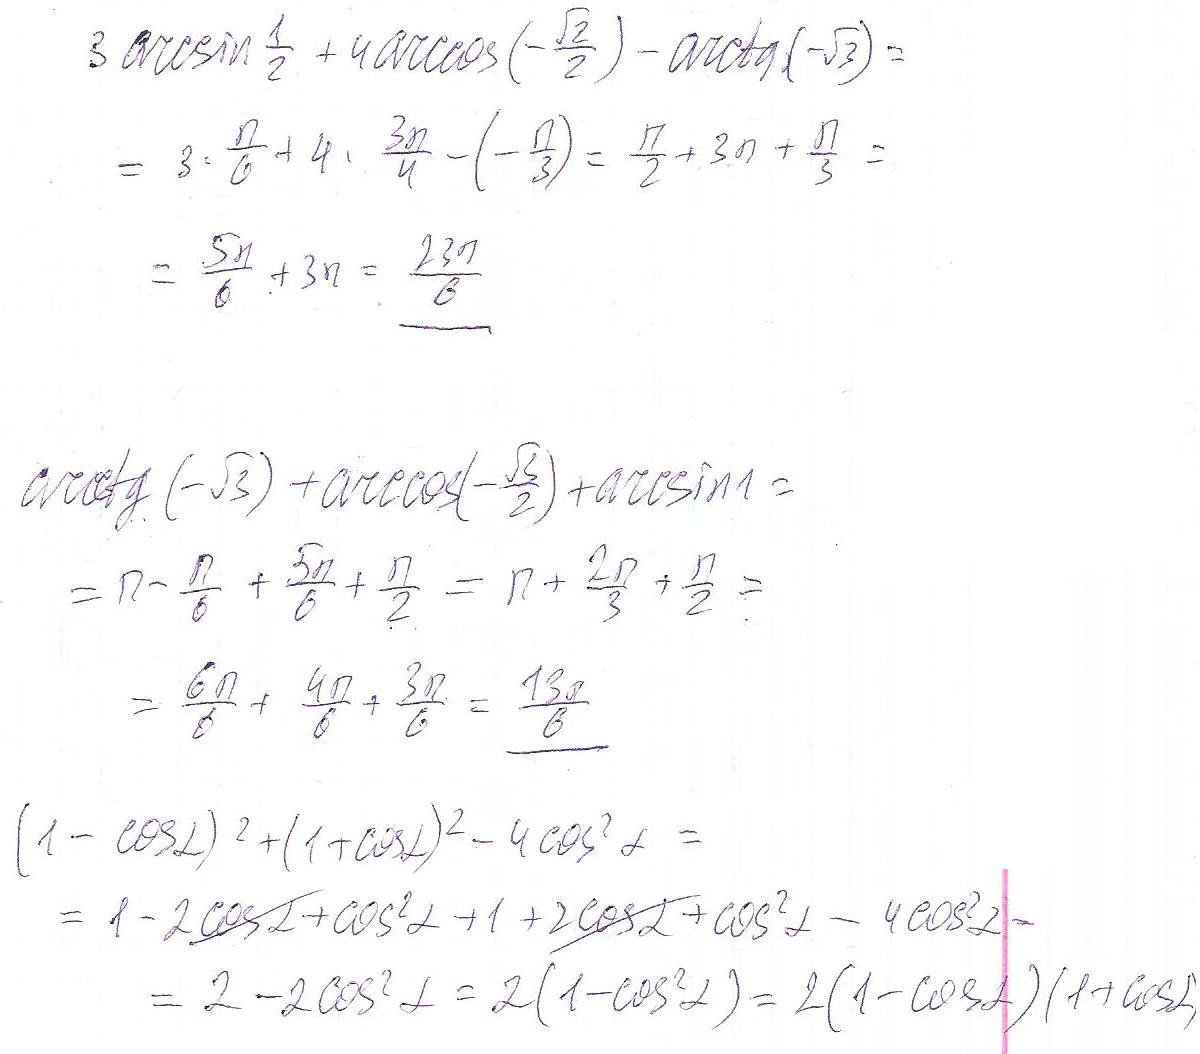 3 arcsin 1/2 + 4 arccos (-√2/2) - arctg (-√3) =
= 3 · π/6 + 4 · 3π/4 - (-π/3) = π/2 + 3π + π/3 =
= 5π/6 + 3π = 23π/6
arcctg (-√3) + arccos(-√3/2) + arcsin 1 =
= π - π/6 + 5π/6 + π/2 = π + 2π/3 + π/2 =
= 6π/6 + 4π/6 + 3π/6 = 13π/6
(1 - cosα)² + (1 + cosα)² - 4cos²α =
= 1 - 2cosα + cos²α + 1 + 2cosα + cos²α - 4cos²α =
= 2 - 2cos²α = 2(1 - cos²α) = 2(1 - cosα)(1 + cosα)